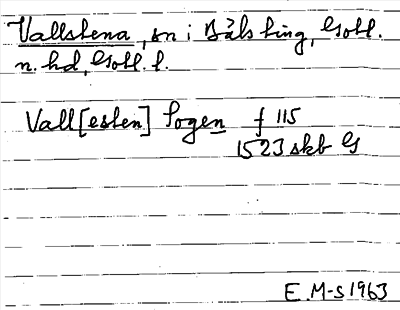 Vallstena, sn i Bäls ting, Gotl.
n. hd, Gotl. l.
Vall[esten] Sogen f 115
1523 skb G
E. M-s 1963